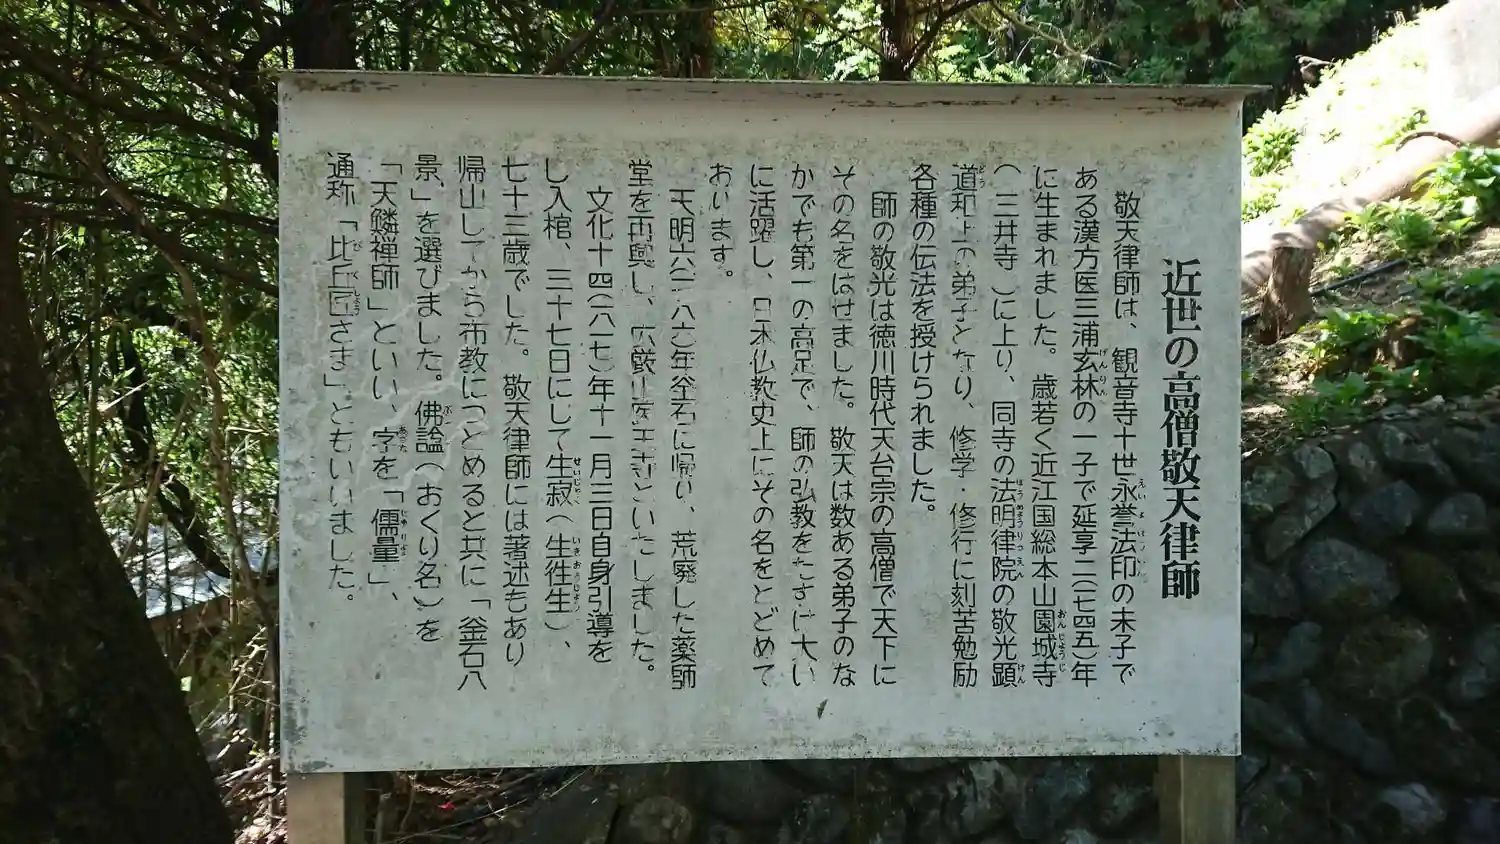 近世の高僧敬天律師
敬天律師は、観音寺十世永誉法印の末子で
ある漢方医三浦玄林の一子で延享二(一七四五)年
に生まれました。歳若く近江国総本山園城寺
(三井寺)に上り、同寺の法明律院の敬光顕
道和上の弟子となり、修学・修行に刻苦勉励
各種の伝法を授けられました。
師の敬光は徳川時代天台宗の高僧で天下に
その名をはせました。敬天は数ある弟子のな
かでも第一の高足で、師の弘教をたすけ大い
に活躍し、日本仏教史上にその名をとどめて
おります。
天明六(一七八六)年釜石に帰り、荒廃した薬師
堂を再興し、医王寺といたしました。
文化十四(一八一七)年十一月三日自身引導を
し入棺、三十七日にして生寂(生往生)、
七十三歳でした。敬天律師には著述もあり
帰山してから布教につとめると共に「釜石八
景」を選びました。佛諡(おくり名)を
「天鱗禅師」といい、字を「儒量」、
通称「比丘尼さま」ともいいました。